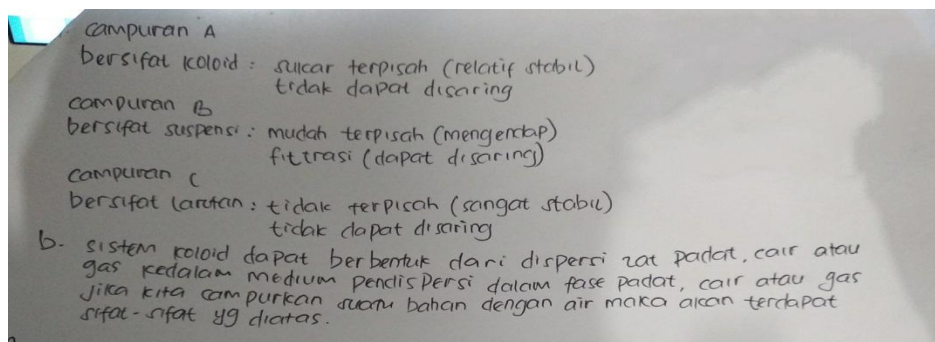 campuran A
bersifat koloid : sukar terpisah (relatif stabil)
tidak dapat disaring
campuran B
bersifat suspensi : mudah terpisah (mengendap)
fittrasi (dapat disaring)
campuran C
bersifat larutan : tidak terpisah (sangat stabil)
tidak dapat disaring
b. sistem koloid dapat berbentuk dari dispersi zat padat, cair atau
gas kedalam medium pendispersi dalam fase padat, cair atau gas
Jika kita campurkan suatu bahan dengan air maka akan terdapat
sifat-sifat yg diatas.